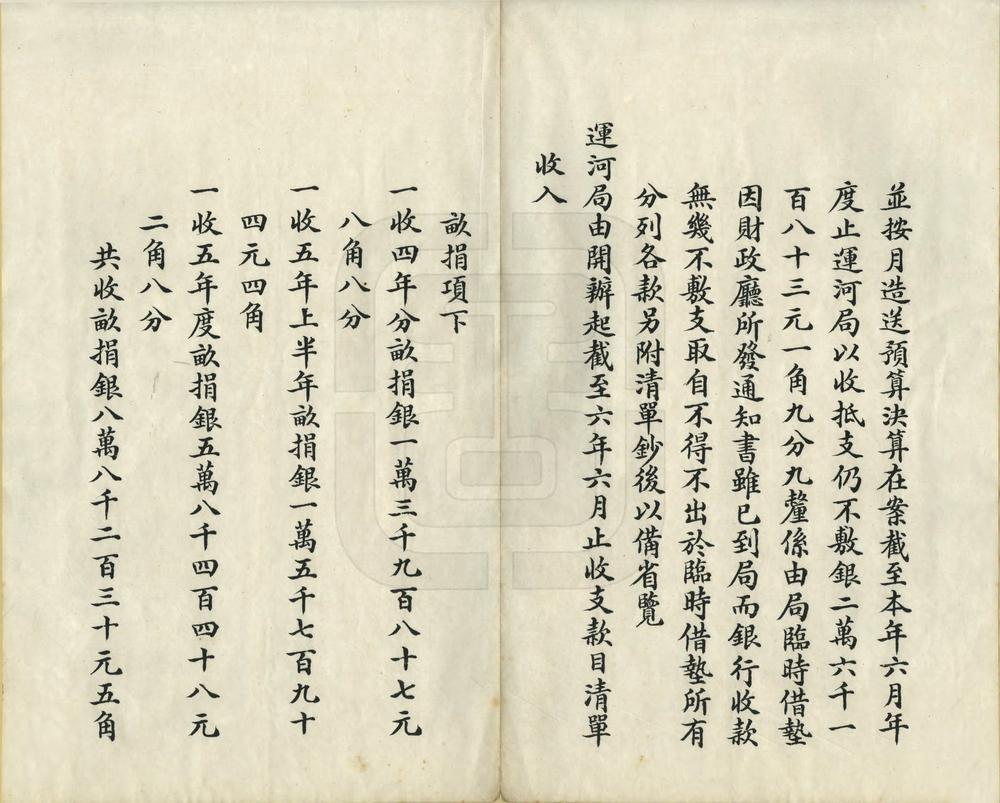 並按月造送預算決算在案截至本年六月年
度止運河局以收抵支仍不敷銀二萬六千一
百八十三元一角九分九釐係由局臨時借墊
因財政廳所發通知書雖已到局而銀行收款
無幾不敷支取自不得不出於臨時借墊所有
分列各款另附清單鈔後以備省覽
運河局由開辦起截至六年六月止收支款目清單
收入
畝捐項下
一收四年分畝捐銀一萬三千九百八十七元
八角八分
一收五年上半年畝捐銀一萬五千七百九十
四元四角
一收五年度畝捐銀五萬八千四百四十八元
二角八分
共收畝捐銀八萬八千二百三十元五角